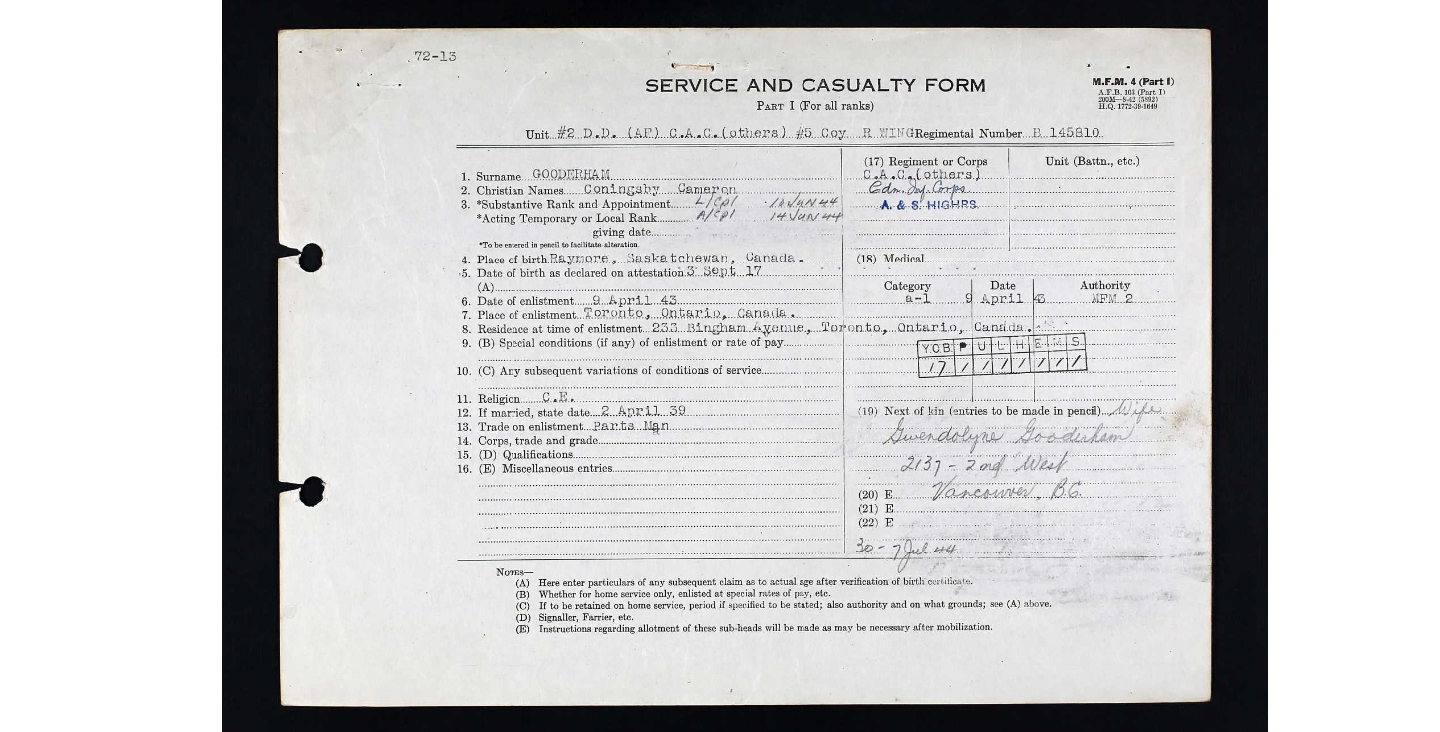 72-13
SERVICE AND CASUALTY FORM
PART I (For all ranks)
M.F.M. 4 (Part I)
A.F.B. 103 (Part I)
200M—8-42 (5892)
H.Q. 1772-39-1649
Unit #2 D.D. (AF) C.A.C.(others) #5 Coy R WING Regimental Number B 145810
1. Surname GOODERHAM
2. Christian Names Coningsby Cameron
3. *Substantive Rank and Appointment L/Cpl 14 JUN 44
*Acting Temporary or Local Rank A/Cpl 14 JUN 44
giving date
*To be entered in pencil to facilitate alteration.
4. Place of birth Raymore, Saskatchewan, Canada.
5. Date of birth as declared on attestation 3 Sept 17
(A)
6. Date of enlistment 9 April 43
7. Place of enlistment Toronto, Ontario, Canada.
8. Residence at time of enlistment 233 Bingham Avenue, Toronto, Ontario, Canada.
9. (B) Special conditions (if any) of enlistment or rate of pay
10. (C) Any subsequent variations of conditions of service
11. Religion C.E.
12. If married, state date 2 April 39
13. Trade on enlistment Parts Man
14. Corps, trade and grade
15. (D) Qualifications
16. (E) Miscellaneous entries
(17) Regiment or Corps Unit (Battn., etc.)
C.A.C.(others)
Cdn. Inf. Corps
A. & S. HIGHRS.
(18) Medical
Category Date Authority
a-1 9 April 43 MFM 2
Y.O.B. P U L H E M S
17 / / / / / / /
(19) Next of kin (entries to be made in pencil) Wife
Gwendolyne Gooderham
2137 - 2nd West
(20) E Vancouver, B.C.
(21) E
(22) E
30 - 7 Jul 44
NOTES—
(A) Here enter particulars of any subsequent claim as to actual age after verification of birth certificate.
(B) Whether for home service only, enlisted at special rates of pay, etc.
(C) If to be retained on home service, period if specified to be stated; also authority and on what grounds; see (A) above.
(D) Signaller, Farrier, etc.
(E) Instructions regarding allotment of these sub-heads will be made as may be necessary after mobilization.